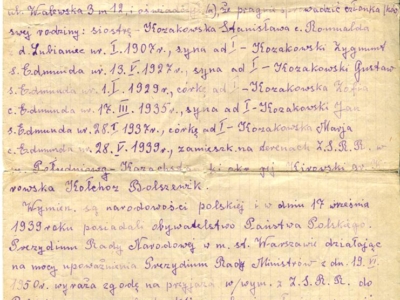 ul. Walewska 3 m 12 i oświadcza, że pragnie sprowadzić członka
swej rodziny: siostrę - Kozakowska Stanisława c. Romualda
d. Lubianiec ur. I. 1907 r., syna ad I - Kozakowski Zygmunt
s. Edmunda ur. 13. V. 1927 r., syna ad I - Kozakowski Gustaw
s. Edmunda ur. 1. I. 1929 r., córkę ad I - Kozakowska Zofia
c. Edmunda ur. 17. III. 1935 r., syna ad I - Kozakowski Jan
s. Edmunda ur. 28. I 1937 r., córkę ad I - Kozakowska Marja
c. Edmunda ur. 28. V. 1939 r., zamieszk. na terenach Z.S.R.R. w
Południowy Kirowski
Kołchoz Bolszewik.
Wymien. są narodowości polskiej i w dniu 17 września
1939 roku posiadali obywatelstwo Państwa Polskiego.
Prezydium Rady Narodowej w m. st. Warszawie działając
na mocy upoważnienia Prezydium Rady Ministrów z dn. 19. VI
1950 r. wyraża zgodę na przyjazd w/wym. z Z.S.R.R. do